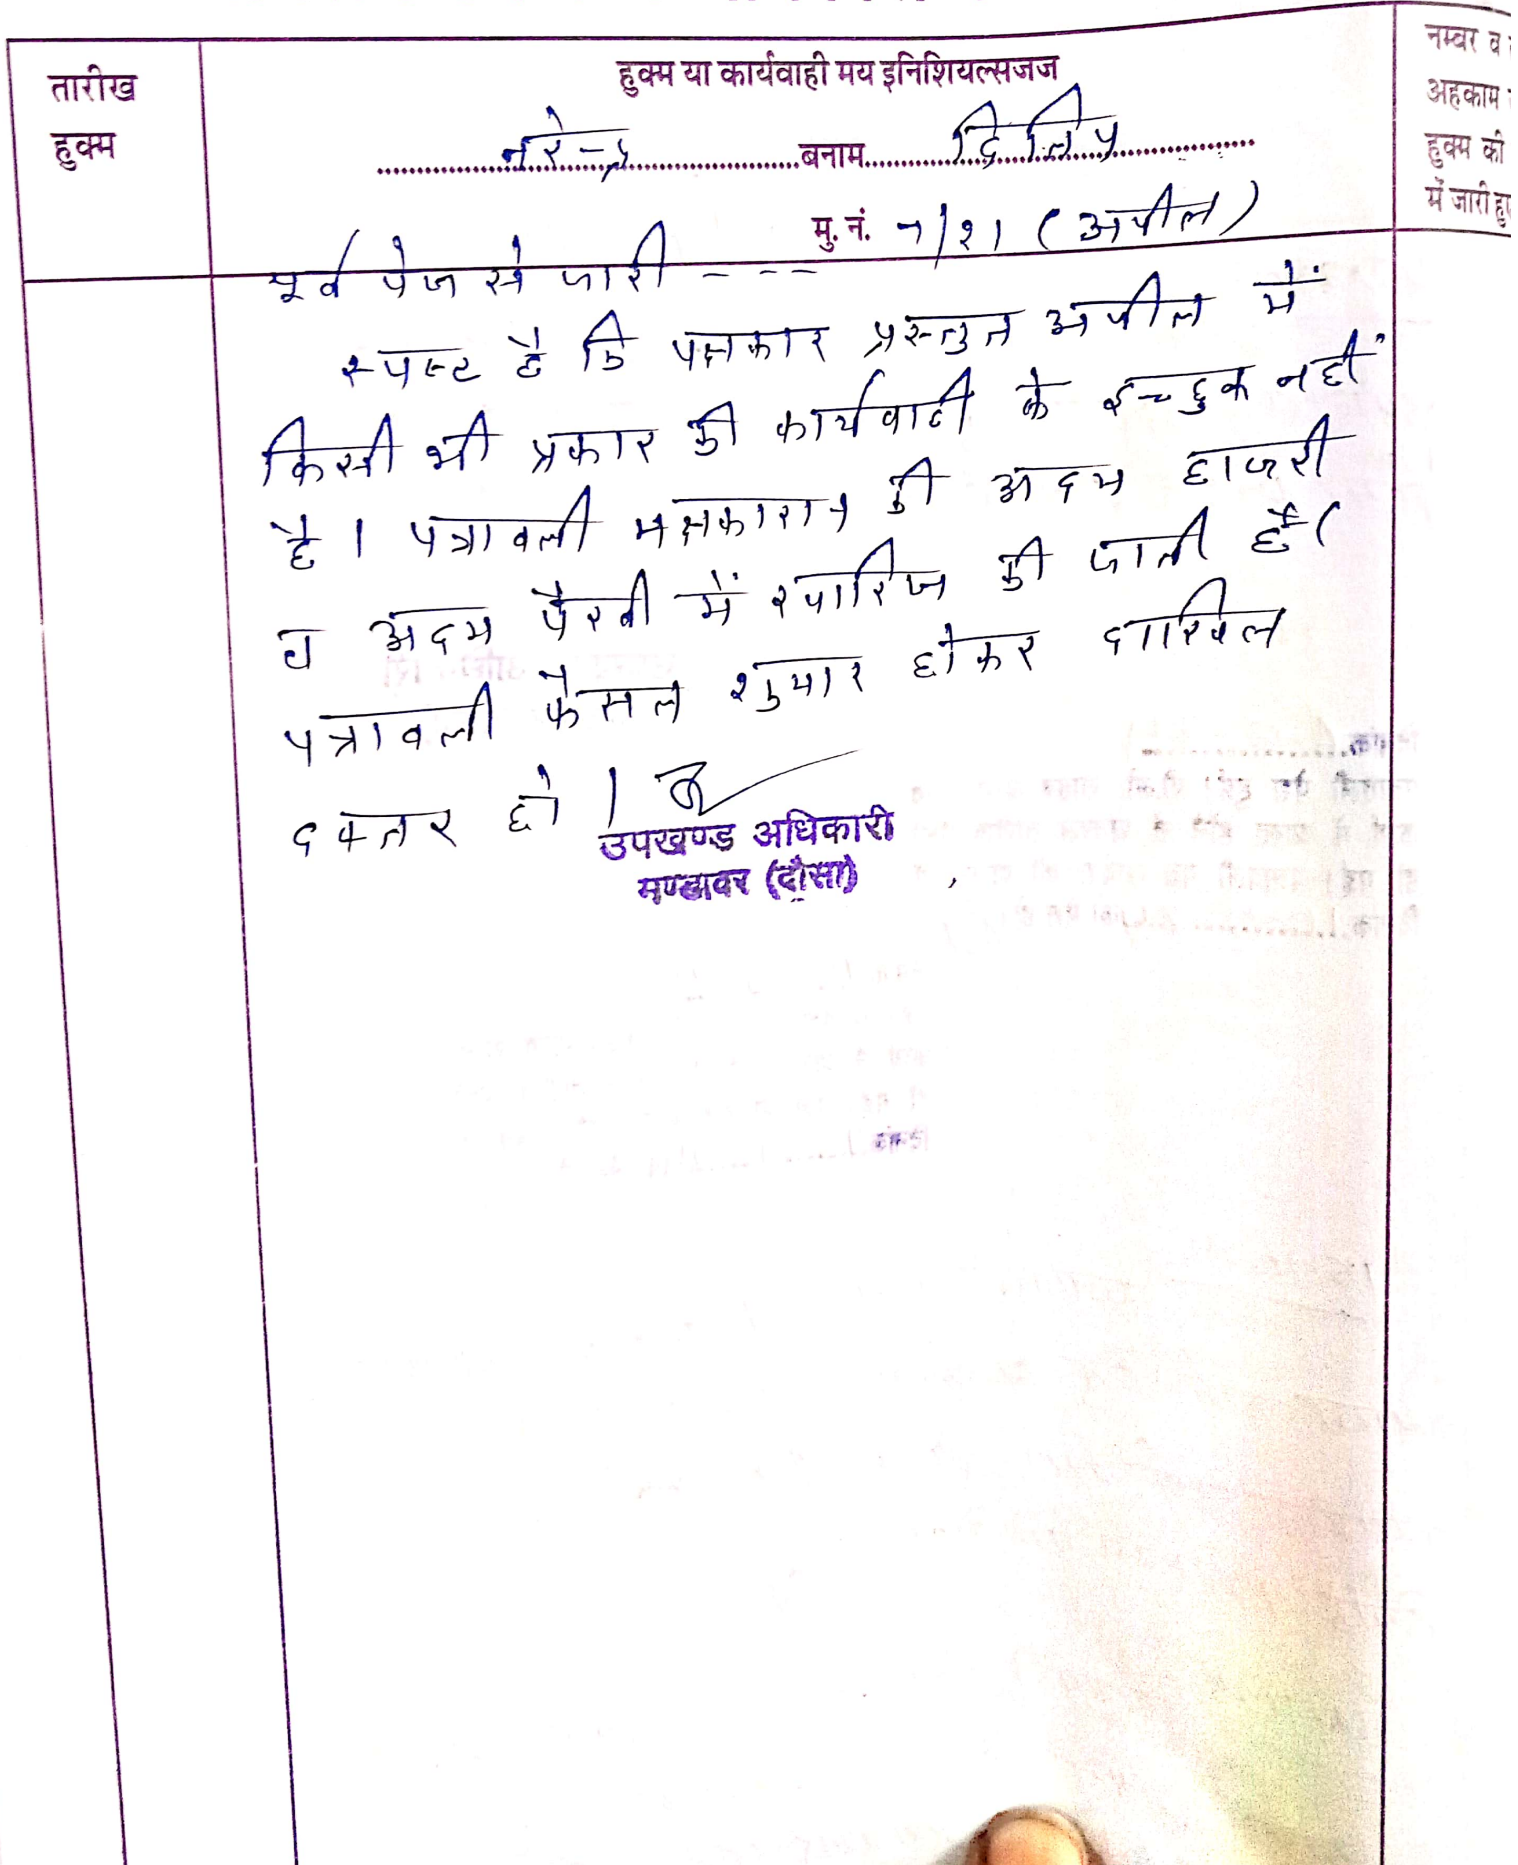 तारीख
हुक्म
हुक्म या कार्यवाही मय इनिशियल्सजज
नरेन्द्र बनाम दिलिप
मु. नं. 7/21 (अपील)
नम्बर व
अहकाम
हुक्म की
में जारी हु
पूर्व पेज से जारी - - -
स्पष्ट है कि पक्षकार प्रस्तुत अपील में
किसी भी प्रकार की कार्यवाही के इच्छुक नहीं
है । पत्रावली पक्षकारान की अदम हाजरी
व अदम पैरवी में खारिज की जाती है ।
पत्रावली फैसल शुमार होकर दाखिल
दफ्तर हो ।
उपखण्ड अधिकारी
मण्डावर (दौसा)